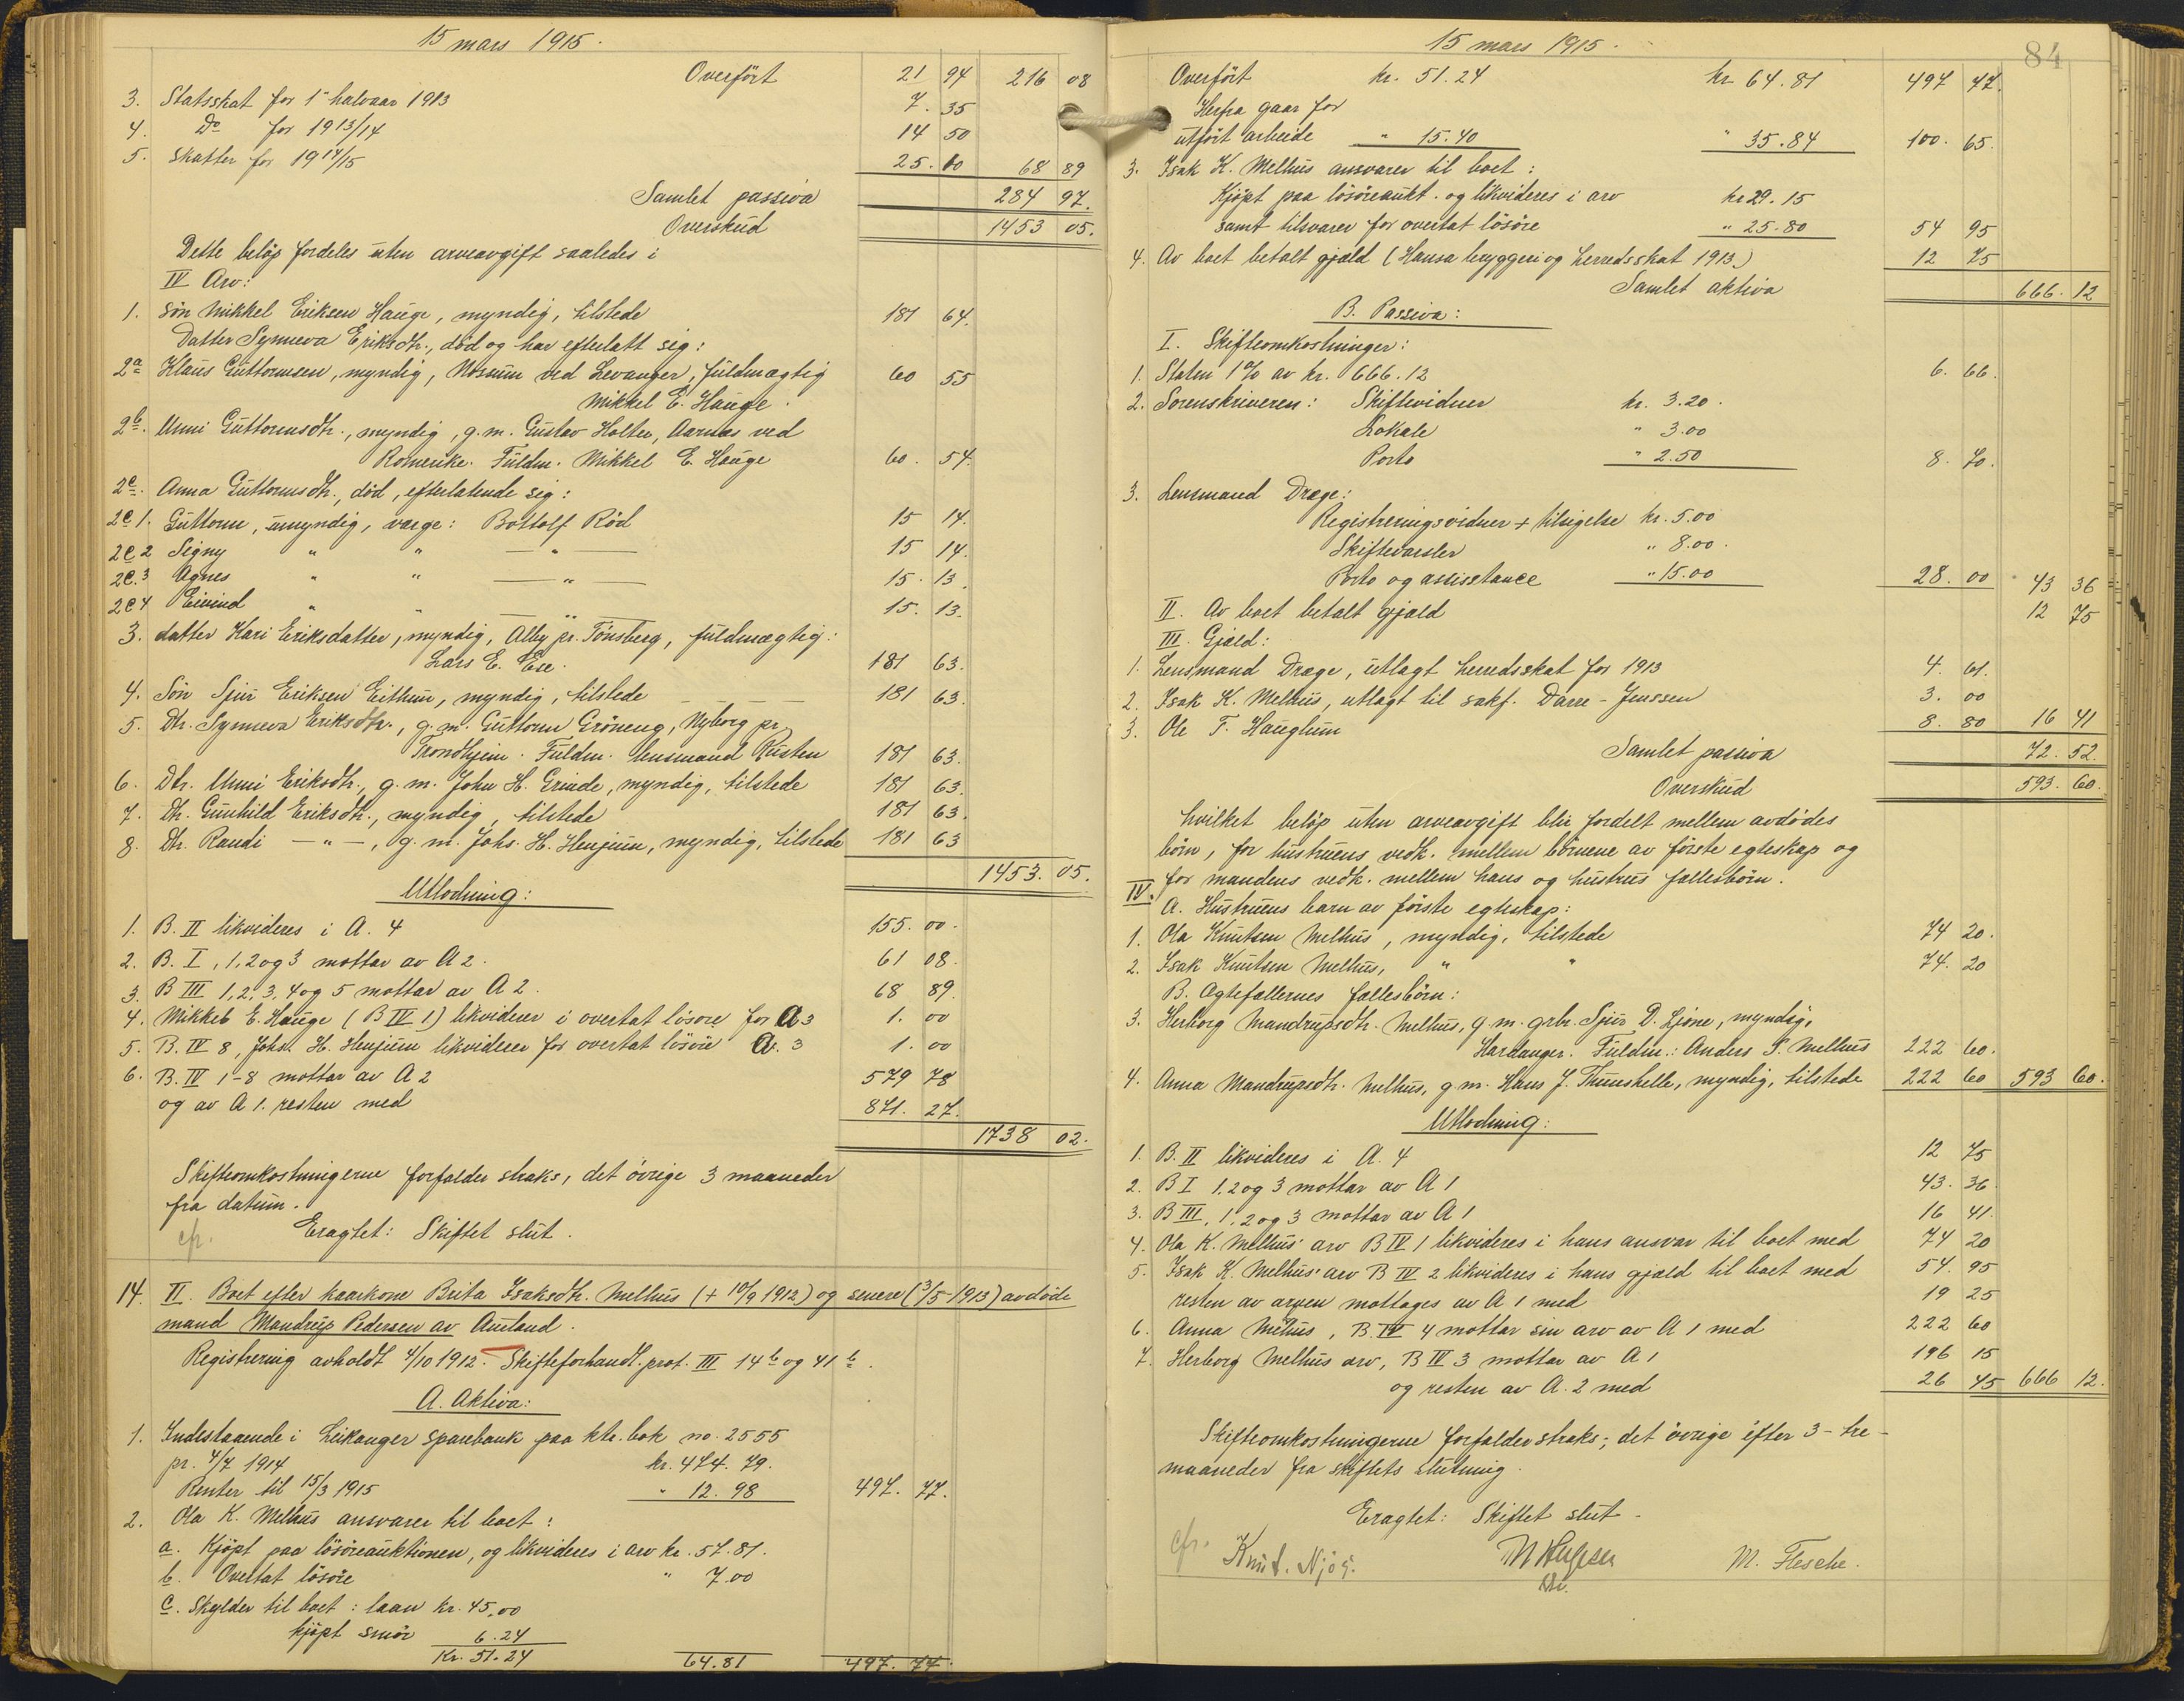 15 mars 1915.
Overført 21 94 216 08
3. Statsskat for 1ste halvaar 1913 7. 35
4. Do for 1913/14 14 50
5. Skatter for 1914/15 25. 10 68 89
Samlet passiva 284 97.
Overskud 1453 05.
Dette beløp fordeles uten arveavgift saaledes i
IV Arv:
1. Søn Mikkel Eriksen Hauge, myndig, tilstede 181 64.
Datter Synneva Eriksdtr., død og har efterlatt sig:
2a Klaus Guttormsen, myndig, Mosum ved Levanger, fuldmægtig 60 55
Mikkel E. Hauge.
2b. Unni Guttormsdtr., myndig, g.m. Gustav Holter, Aarnes ved
Romerike. Fuldm. Mikkel E. Hauge 60. 54.
2c. Anna Guttormsdtr., død, efterlatende sig:
2c 1. Guttorm, umyndig, værge: Bottolf Rød 15 14.
2c 2 Signy " " — " — 15 14.
2c. 3 Agnes " " — " — 15. 13.
2c 4 Eivind " " — " — 15. 13.
3. datter Kari Eriksdatter, myndig, Alby pr. Tønsberg, fuldmægtig:
Lars E. Ese. 181 63.
4. Søn Sjur Eriksen Eithun, myndig, tilstede 181 63.
5. Dtr. Synneva Eriksdtr., g.m. Guttorm Grøneng, Nyborg pr.
Trondhjem. Fuldm. lensmand Rusten 181 63.
6. Dtr. Unni Eriksdtr., g.m. John H. Grinde, myndig, tilstede 181 63.
7. Dtr. Gunhild Eriksdtr., myndig, tilstede 181 63.
8. Dtr. Randi — " —, g.m. Johs. H. Henjum, myndig, tilstede 181 63
1453. 05.
Utlodning:
1. B. II likvideres i A. 4 155. 00.
2. B. I, 1, 2 og 3 mottar av A 2. 61 08.
3. B III 1, 2, 3, 4 og 5 mottar av A 2. 68 89.
4. Mikkel E. Hauge (B IV 1) likviderer i overtat løsøre for A 3 1. 00
5. B. IV 8, Johs. H. Henjum likviderer for overtat løsøre A. 3 1. 00
6. B. IV 1-8 mottar av A 2 579 78
og av A 1. resten med 871. 27.
1738 02.
Skifteomkostningerne forfalder straks, det øvrige 3 maaneder
fra datum.
cfr. Eragtet: Skiftet slut.
14. II. Boet efter kaarkone Brita Isaksdtr. Melhus (+ 10/9 1912) og senere (3/5 1913) avdøde
mand Mandrup Pedersen av Aurland.
Registrering avholdt 4/10 1912. Skifteforhandl. prot. III 14 b og 41 b.
A. Aktiva:
1. Indestaaende i Leikanger sparebank paa ktr. bok no. 2555
pr. 4/7 1914 kr. 484. 79.
Renter til 15/3 1915 " 12. 98 497. 77.
2. Ola K. Melhus ansvarer til boet:
a. Kjøpt paa løsøreauktionen, og likvideres i arv kr. 57. 81.
b. Overtat løsøre " 7.00
c. Skylder til boet: laan kr. 45,00
kjøpt smør 6.24
Kr. 51.24 64.81 497. 77.
84
15 mars 1915.
Overført kr. 51.24 kr. 64.81 497 77.
Herfra gaar for
utført arbeide " 15.40 " 35.84 100. 65.
3. Isak K. Melhus ansvarer til boet:
Kjøpt paa løsøreaukt. og likvideres i arv kr. 29. 15
samt tilsvarer for overtat løsøre " 25.80 54 95
4. Av boet betalt gjæld (Hansa bryggeri og herredsskat 1913.) 12 75
Samlet aktiva 666. 12
B. Passiva:
I. Skifteomkostninger:
1. Staten 1% av kr. 666.12 6. 66.
2. Sorenskriveren: Skiftevidner kr. 3.20.
Lokale " 3.00
Porto " 2.50 8. 70.
3. Lensmand Drege:
Registreringsvidner + tilsigelse kr. 5.00
Skiftevarsler " 8.00.
Porto og assistance " 15.00 28. 00 43 36
II. Av boet betalt gjæld 12 75
III. Gjæld:
1. Lensmand Drege, utlagt herredsskat for 1913 4. 61.
2. Isak K. Melhus, utlagt til sakf. Darre-Jenssen 3. 00
3. Ole T. Hauglum 8. 80 16 41
Samlet passiva 72. 52.
Overskud 593. 60.
hvilket beløp uten arveavgift blir fordelt mellem avdødes
børn, for hustruens vedk. mellem børnene av første egteskap og
for mandens vedk. mellem hans og hustrus fællesbørn.
IV. A. Hustruens barn av første egteskap:
1. Ola Knutsen Melhus, myndig, tilstede 74 20.
2. Isak Knutsen Melhus, " " 74. 20
B. Ægtefællernes fællesbørn:
3. Herborg Mandrupsdtr. Melhus, g.m. grbr. Sjur D. Ljone, myndig,
Hardanger. Fuldm.: Anders S. Melhus 222 60.
4. Anna Mandrupsdtr. Melhus, g.m. Hans J. Thunshelle, myndig, tilstede 222 60 593 60.
Utlodning:
1. B. II likvideres i A. 4 12 75
2. B I 1, 2 og 3 mottar av A 1 43. 36.
3. B III, 1, 2 og 3 mottar av A 1 16 41.
4. Ola K. Melhus' arv B IV 1 likvideres i hans ansvar til boet med 74 20
5. Isak K. Melhus' arv B IV 2 likvideres i hans gjæld til boet med 54. 95
resten av arven mottages av A 1 med 19 25
6. Anna Melhus, B. IV 4 mottar sin arv av A 1 med 222 60
7. Herborg Melhus arv, B IV 3 mottar av A 1 196 15
og resten av A. 2 med 26 45 666 12.
Skifteomkostningerne forfalder straks; det øvrige efter 3 - tre -
maaneder fra skiftets slutning.
Eragtet: Skiftet slut -
cfr. Knut. Njøs. M. Flesche.